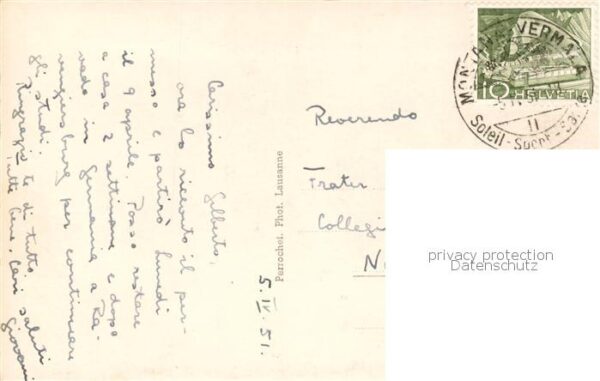 Carissimo Gilberto,
ora ho ricevuto il per-
messo e partirò Lunedì
il 9 aprile. Posso restare
a casa 2 settimane e dopo
vado in Germania a Ra-
vengiersburg per continuare
gli studi.
Ringrazio te di tutto
tutto bene. Cari saluti
Giovanni
5.IV.51.
Perrochet. Phot. Lausanne
Reverendo
Frater
Collegi
N
10 HELVETIA
MONTANA-VERMALA
II
Soleil - Sport
privacy protection
Datenschutz